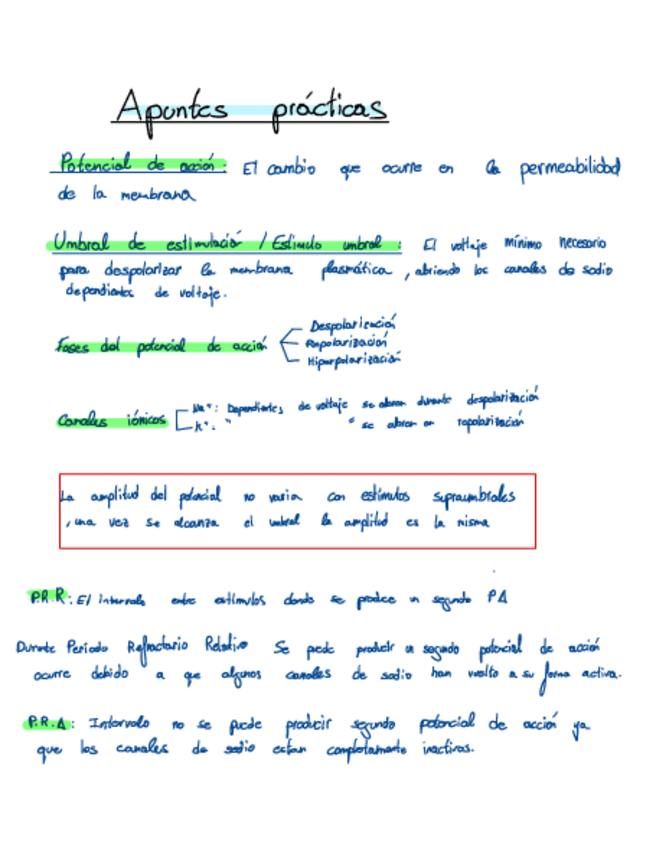 Apuntes prácticas
Potencial de acción: El cambio que ocurre en la permeabilidad
de la membrana
Umbral de estimulación / Estimulo umbral: El voltaje mínimo necesario
para despolarizar la membrana plasmática, abriendo los canales de sodio
dependientes de voltaje.
Fases del potencial de acción
Despolarización
Repolarización
Hiperpolarización
Canales iónicos
Na⁺: Dependientes de voltaje se abren durante despolarización
K⁺: " " se abren en repolarización
La amplitud del potencial no varia con estímulos supraumbrales
, una vez se alcanza el umbral la amplitud es la misma
P.R.R: El intervalo entre estímulos donde se produce un segundo PA
Durante Período Refractario Relativo Se pede producir un segundo potencial de acción
ocurre debido a que algunos canales de sodio han vuelto a su forma activa.
P.R.A: Intervalo no se puede producir segundo potencial de acción ya
que los canales de sodio estan completamente inactivos.